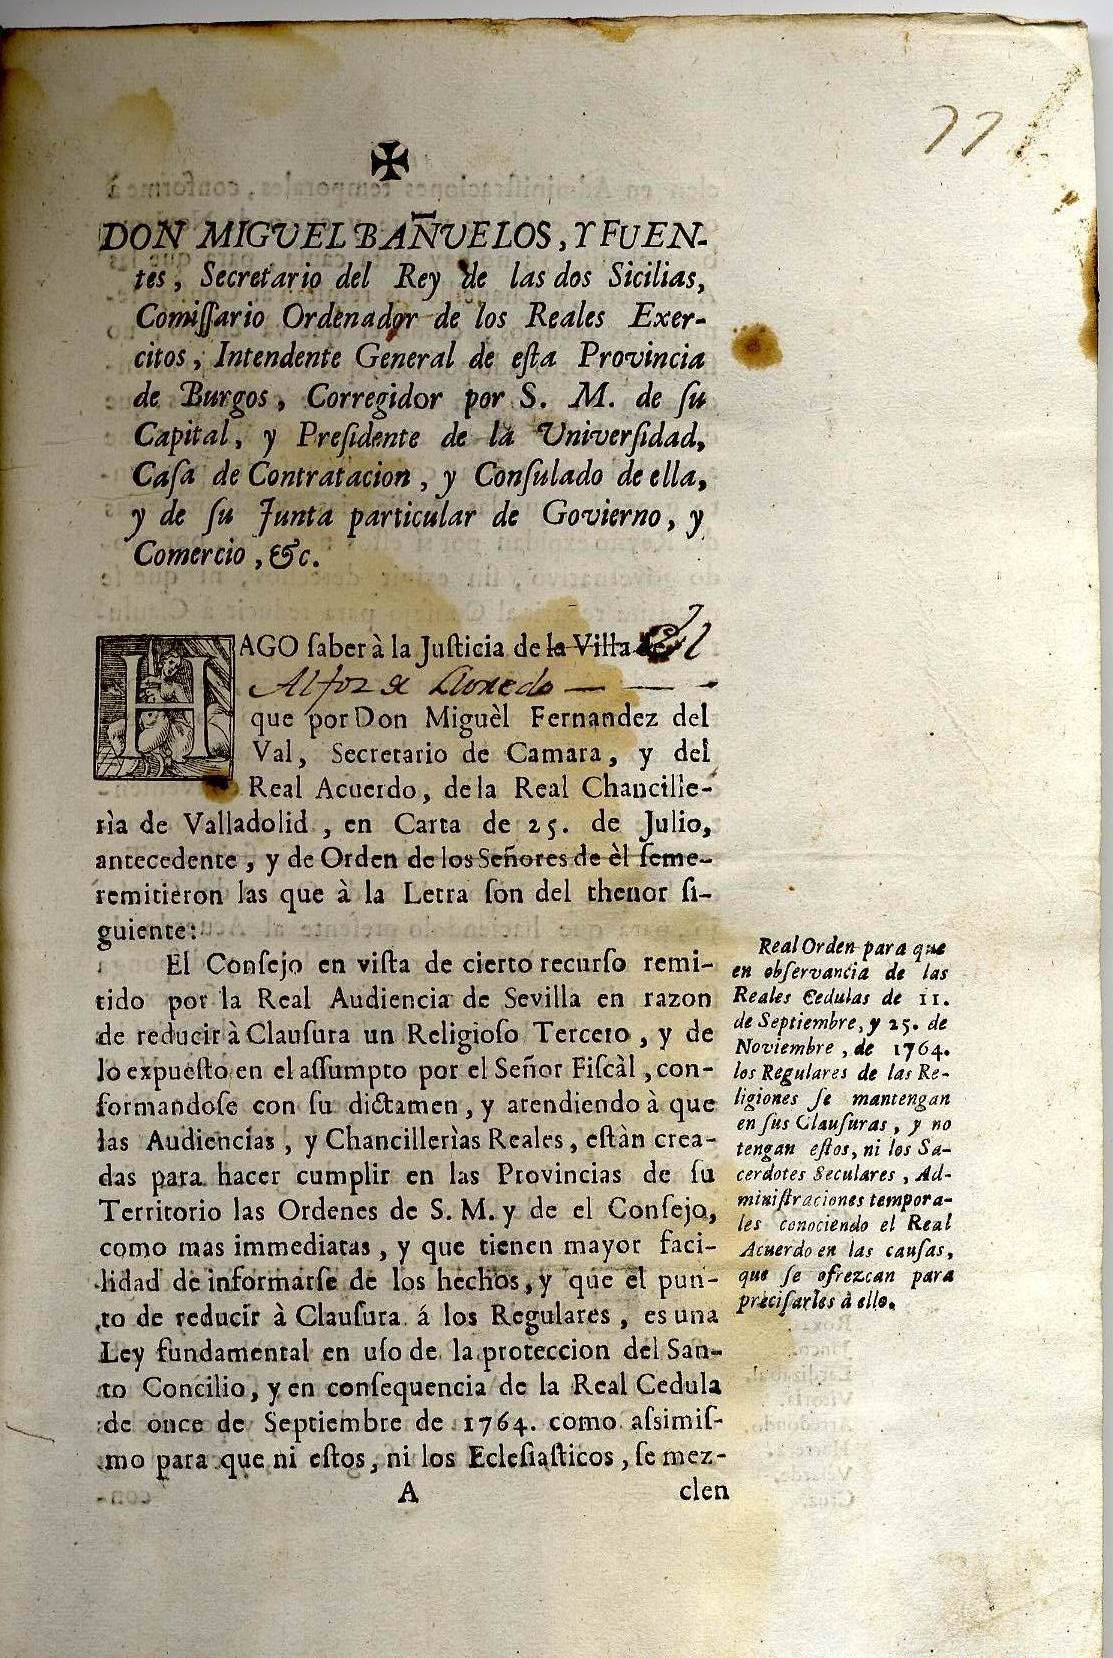 77
✠
DON MIGUEL BAÑUELOS, Y FUEN-
tes, Secretario del Rey de las dos Sicilias,
Comiſſario Ordenador de los Reales Exer-
citos, Intendente General de eſta Provincia
de Burgos, Corregidor por S. M. de ſu
Capital, y Preſidente de la Univerſidad,
Caſa de Contratacion, y Conſulado de ella,
y de ſu Junta particular de Govierno, y
Comercio, &c.
HAGO ſaber à la Juſticia de la Villa de El
Alfoz de Lloredo
que por Don Miguèl Fernandez del
Val, Secretario de Camara, y del
Real Acuerdo, de la Real Chancille-
rìa de Valladolid, en Carta de 25. de Julio,
antecedente, y de Orden de los Señores de èl ſeme-
remitieron las que à la Letra ſon del thenor ſi-
guiente:
El Conſejo en viſta de cierto recurſo remi-
tido por la Real Audiencia de Sevilla en razon
de reducir à Clauſura un Religioſo Tercero, y de
lo expueſto en el aſſumpto por el Señor Fiſcàl, con-
formandoſe con ſu dictamen, y atendiendo à que
las Audiencias, y Chancillerìas Reales, eſtàn crea-
das para hacer cumplir en las Provincias de ſu
Territorio las Ordenes de S. M. y de el Conſejo,
como mas immediatas, y que tienen mayor faci-
lidad de informarſe de los hechos, y que el pun-
to de reducir à Clauſura á los Regulares, es una
Ley fundamental en uſo de la proteccion del San-
to Concilio, y en conſequencia de la Real Cedula
de once de Septiembre de 1764. como aſsimiſ-
mo para que ni eſtos, ni los Ecleſiaſticos, ſe mez-
A clen
Real Orden para que
en obſervancia de las
Reales Cedulas de 11.
de Septiembre, y 25. de
Noviembre, de 1764.
los Regulares de las Re-
ligiones ſe mantengan
en ſus Clauſuras, y no
tengan eſtos, ni los Sa-
cerdotes Seculares, Ad-
miniſtraciones tempora-
les conociendo el Real
Acuerdo en las cauſas,
que ſe ofrezcan para
preciſarles à ello.